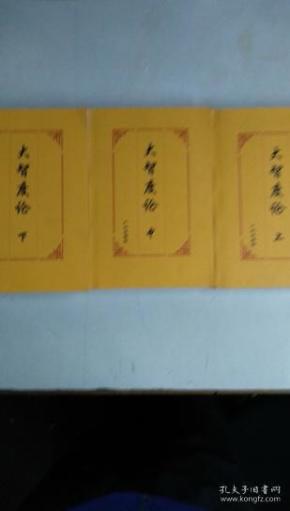 大智度论
下
大智度论
中
大智度论
上
孔夫子旧书网
www.kongfz.com